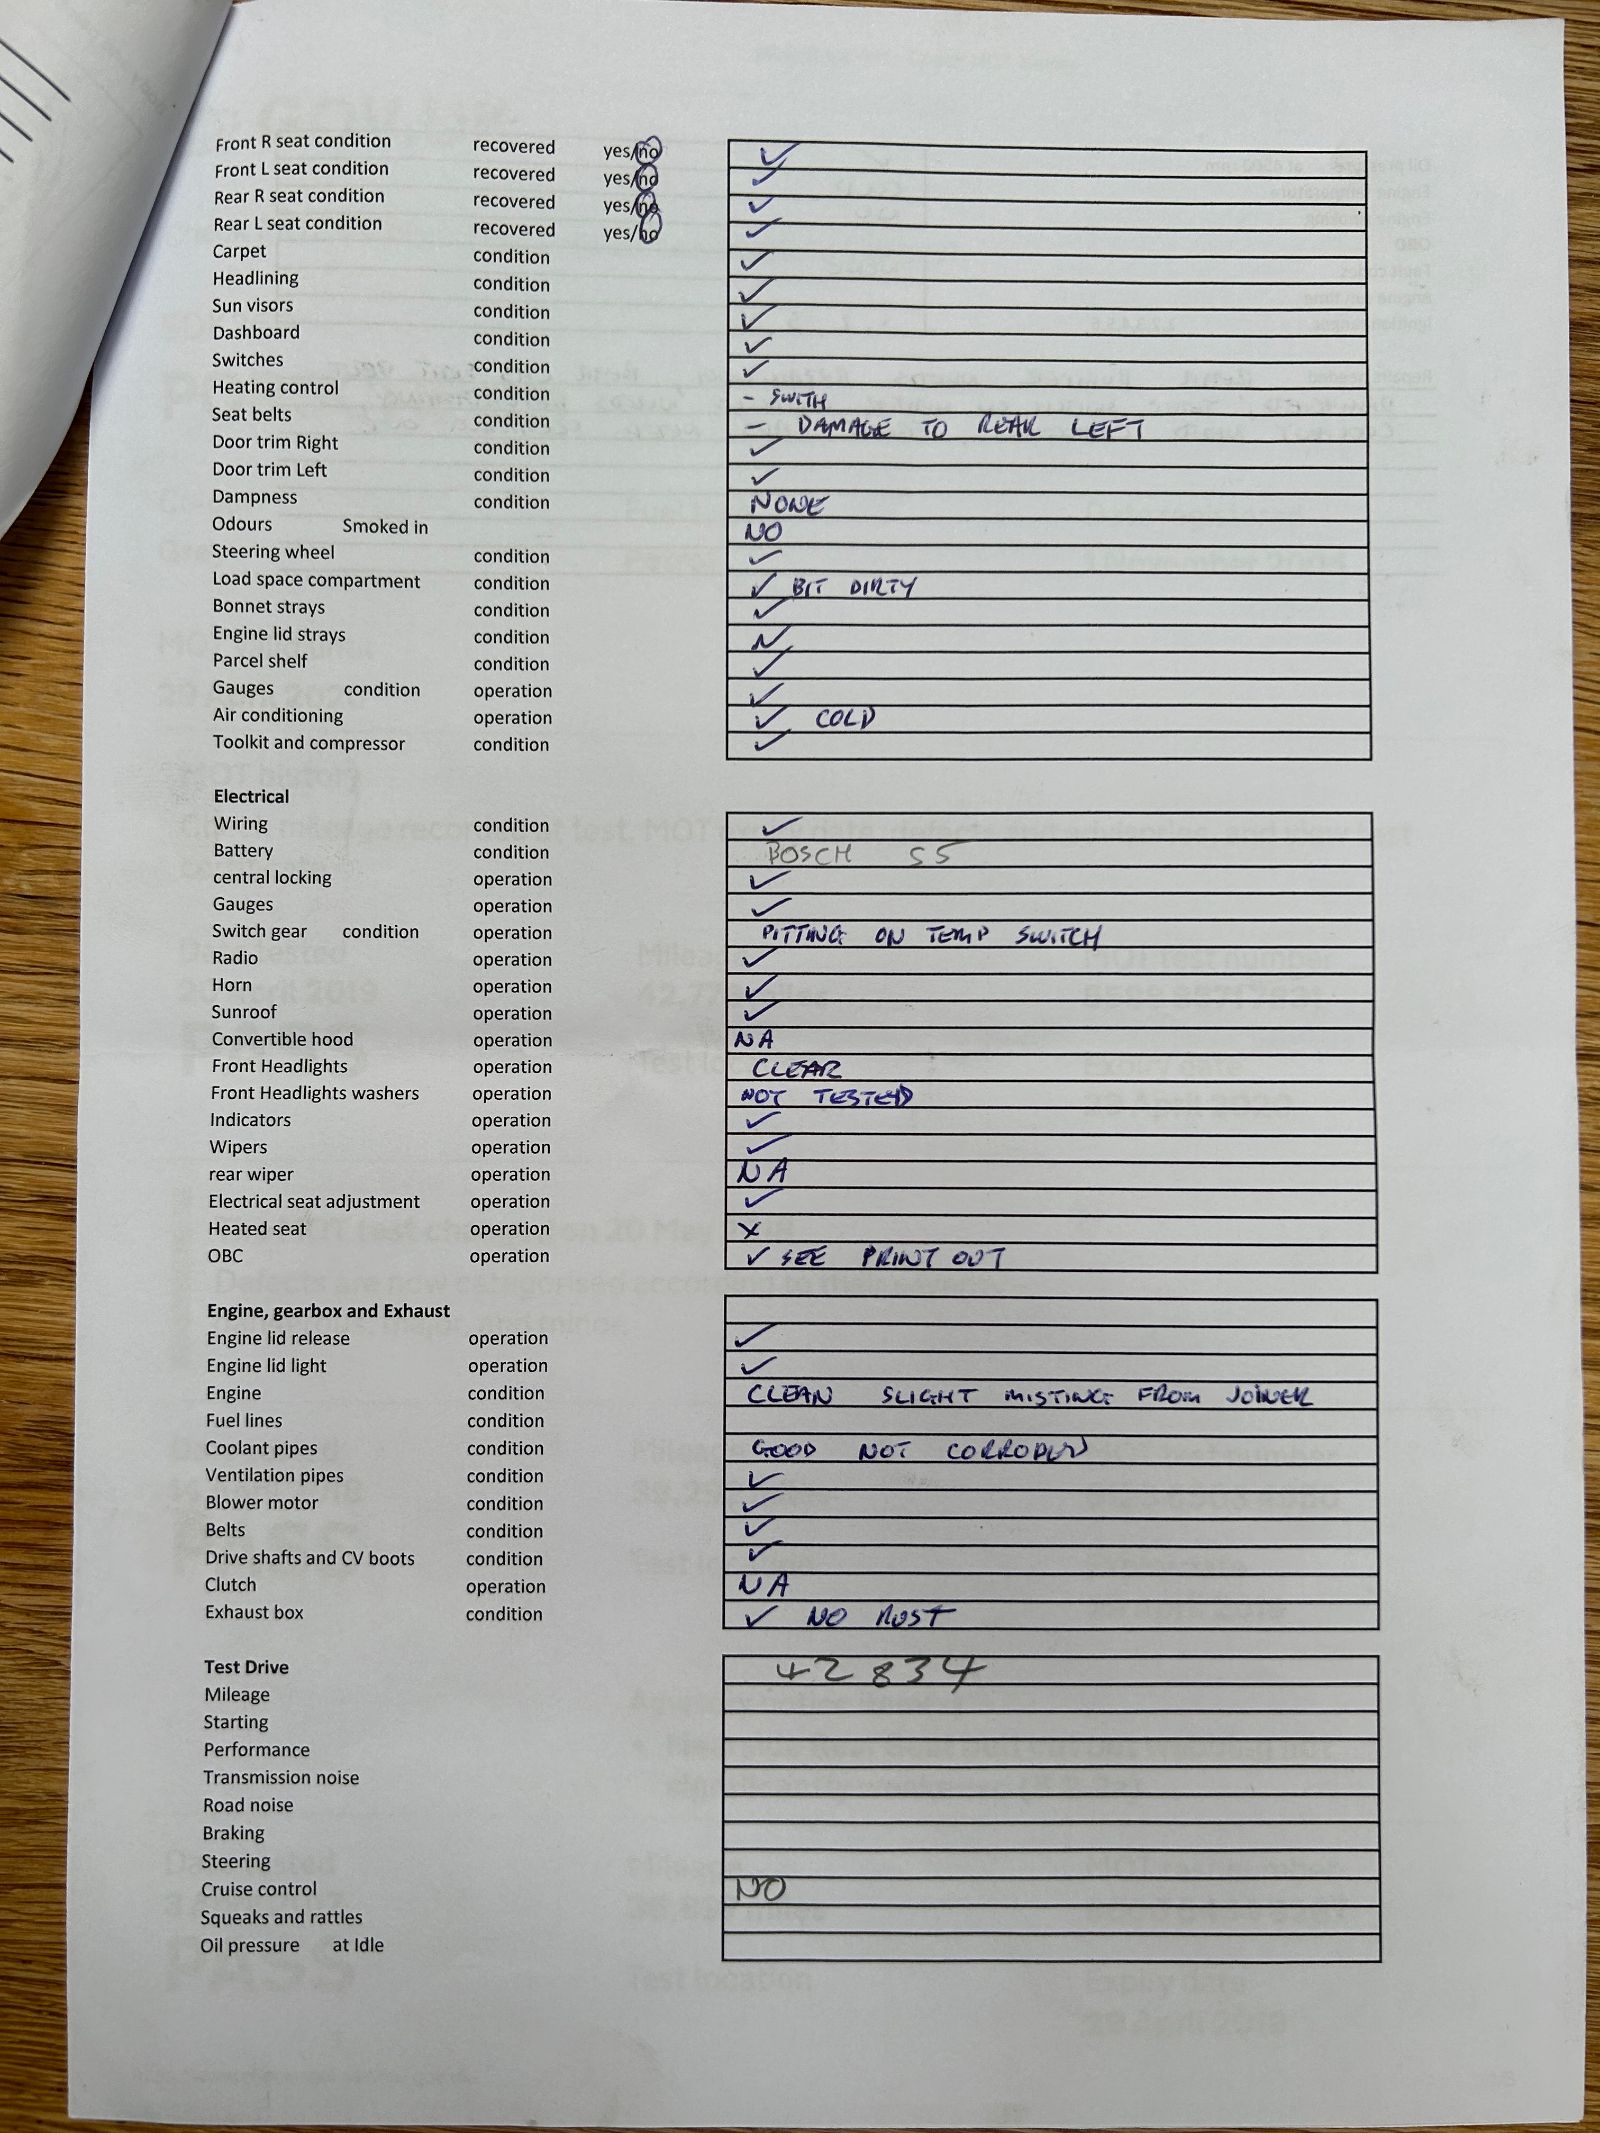 Front R seat condition recovered yes/no ✓
Front L seat condition recovered yes/no ✓
Rear R seat condition recovered yes/no ✓
Rear L seat condition recovered yes/no ✓
Carpet condition ✓
Headlining condition ✓
Sun visors condition ✓
Dashboard condition ✓
Switches condition ✓
Heating control condition - SWITH
Seat belts condition - DAMAGE TO REAR LEFT
Door trim Right condition ✓
Door trim Left condition ✓
Dampness condition NONE
Odours Smoked in NO
Steering wheel condition ✓
Load space compartment condition ✓ BIT DIRTY
Bonnet strays condition ✓
Engine lid strays condition ✓
Parcel shelf condition ✓
Gauges condition operation ✓
Air conditioning operation ✓ COLD
Toolkit and compressor condition ✓
Electrical
Wiring condition ✓
Battery condition BOSCH S5
central locking operation ✓
Gauges operation ✓
Switch gear condition operation PITTING ON TEMP SWITCH
Radio operation ✓
Horn operation ✓
Sunroof operation ✓
Convertible hood operation NA
Front Headlights operation CLEAR
Front Headlights washers operation NOT TESTED
Indicators operation ✓
Wipers operation ✓
rear wiper operation NA
Electrical seat adjustment operation ✓
Heated seat operation X
OBC operation ✓ SEE PRINT OUT
Engine, gearbox and Exhaust
Engine lid release operation ✓
Engine lid light operation ✓
Engine condition CLEAN SLIGHT MISTING FROM JOINER
Fuel lines condition
Coolant pipes condition GOOD NOT CORRODED
Ventilation pipes condition ✓
Blower motor condition ✓
Belts condition ✓
Drive shafts and CV boots condition ✓
Clutch operation NA
Exhaust box condition ✓ NO RUST
Test Drive 42834
Mileage
Starting
Performance
Transmission noise
Road noise
Braking
Steering
Cruise control NO
Squeaks and rattles
Oil pressure at Idle